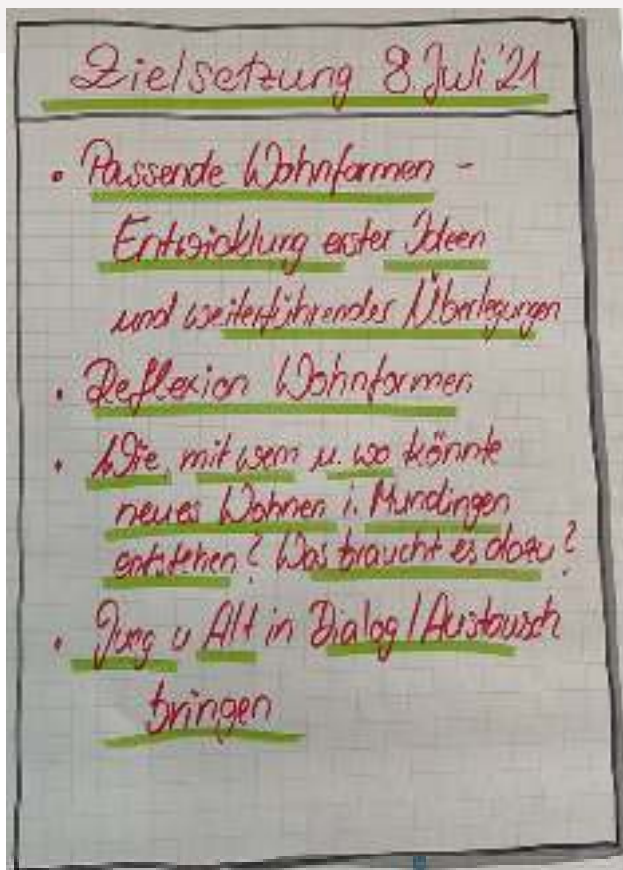 Zielsetzung 8. Juli '21
• Passende Wohnformen -
Entwicklung erster Ideen
und weiterführender Überlegungen
• Reflexion Wohnformen
• Wie, mit wem u. wo könnte
neues Wohnen i. Mundingen
entstehen? Was braucht es dazu?
• Jung u Alt in Dialog / Austausch
bringen